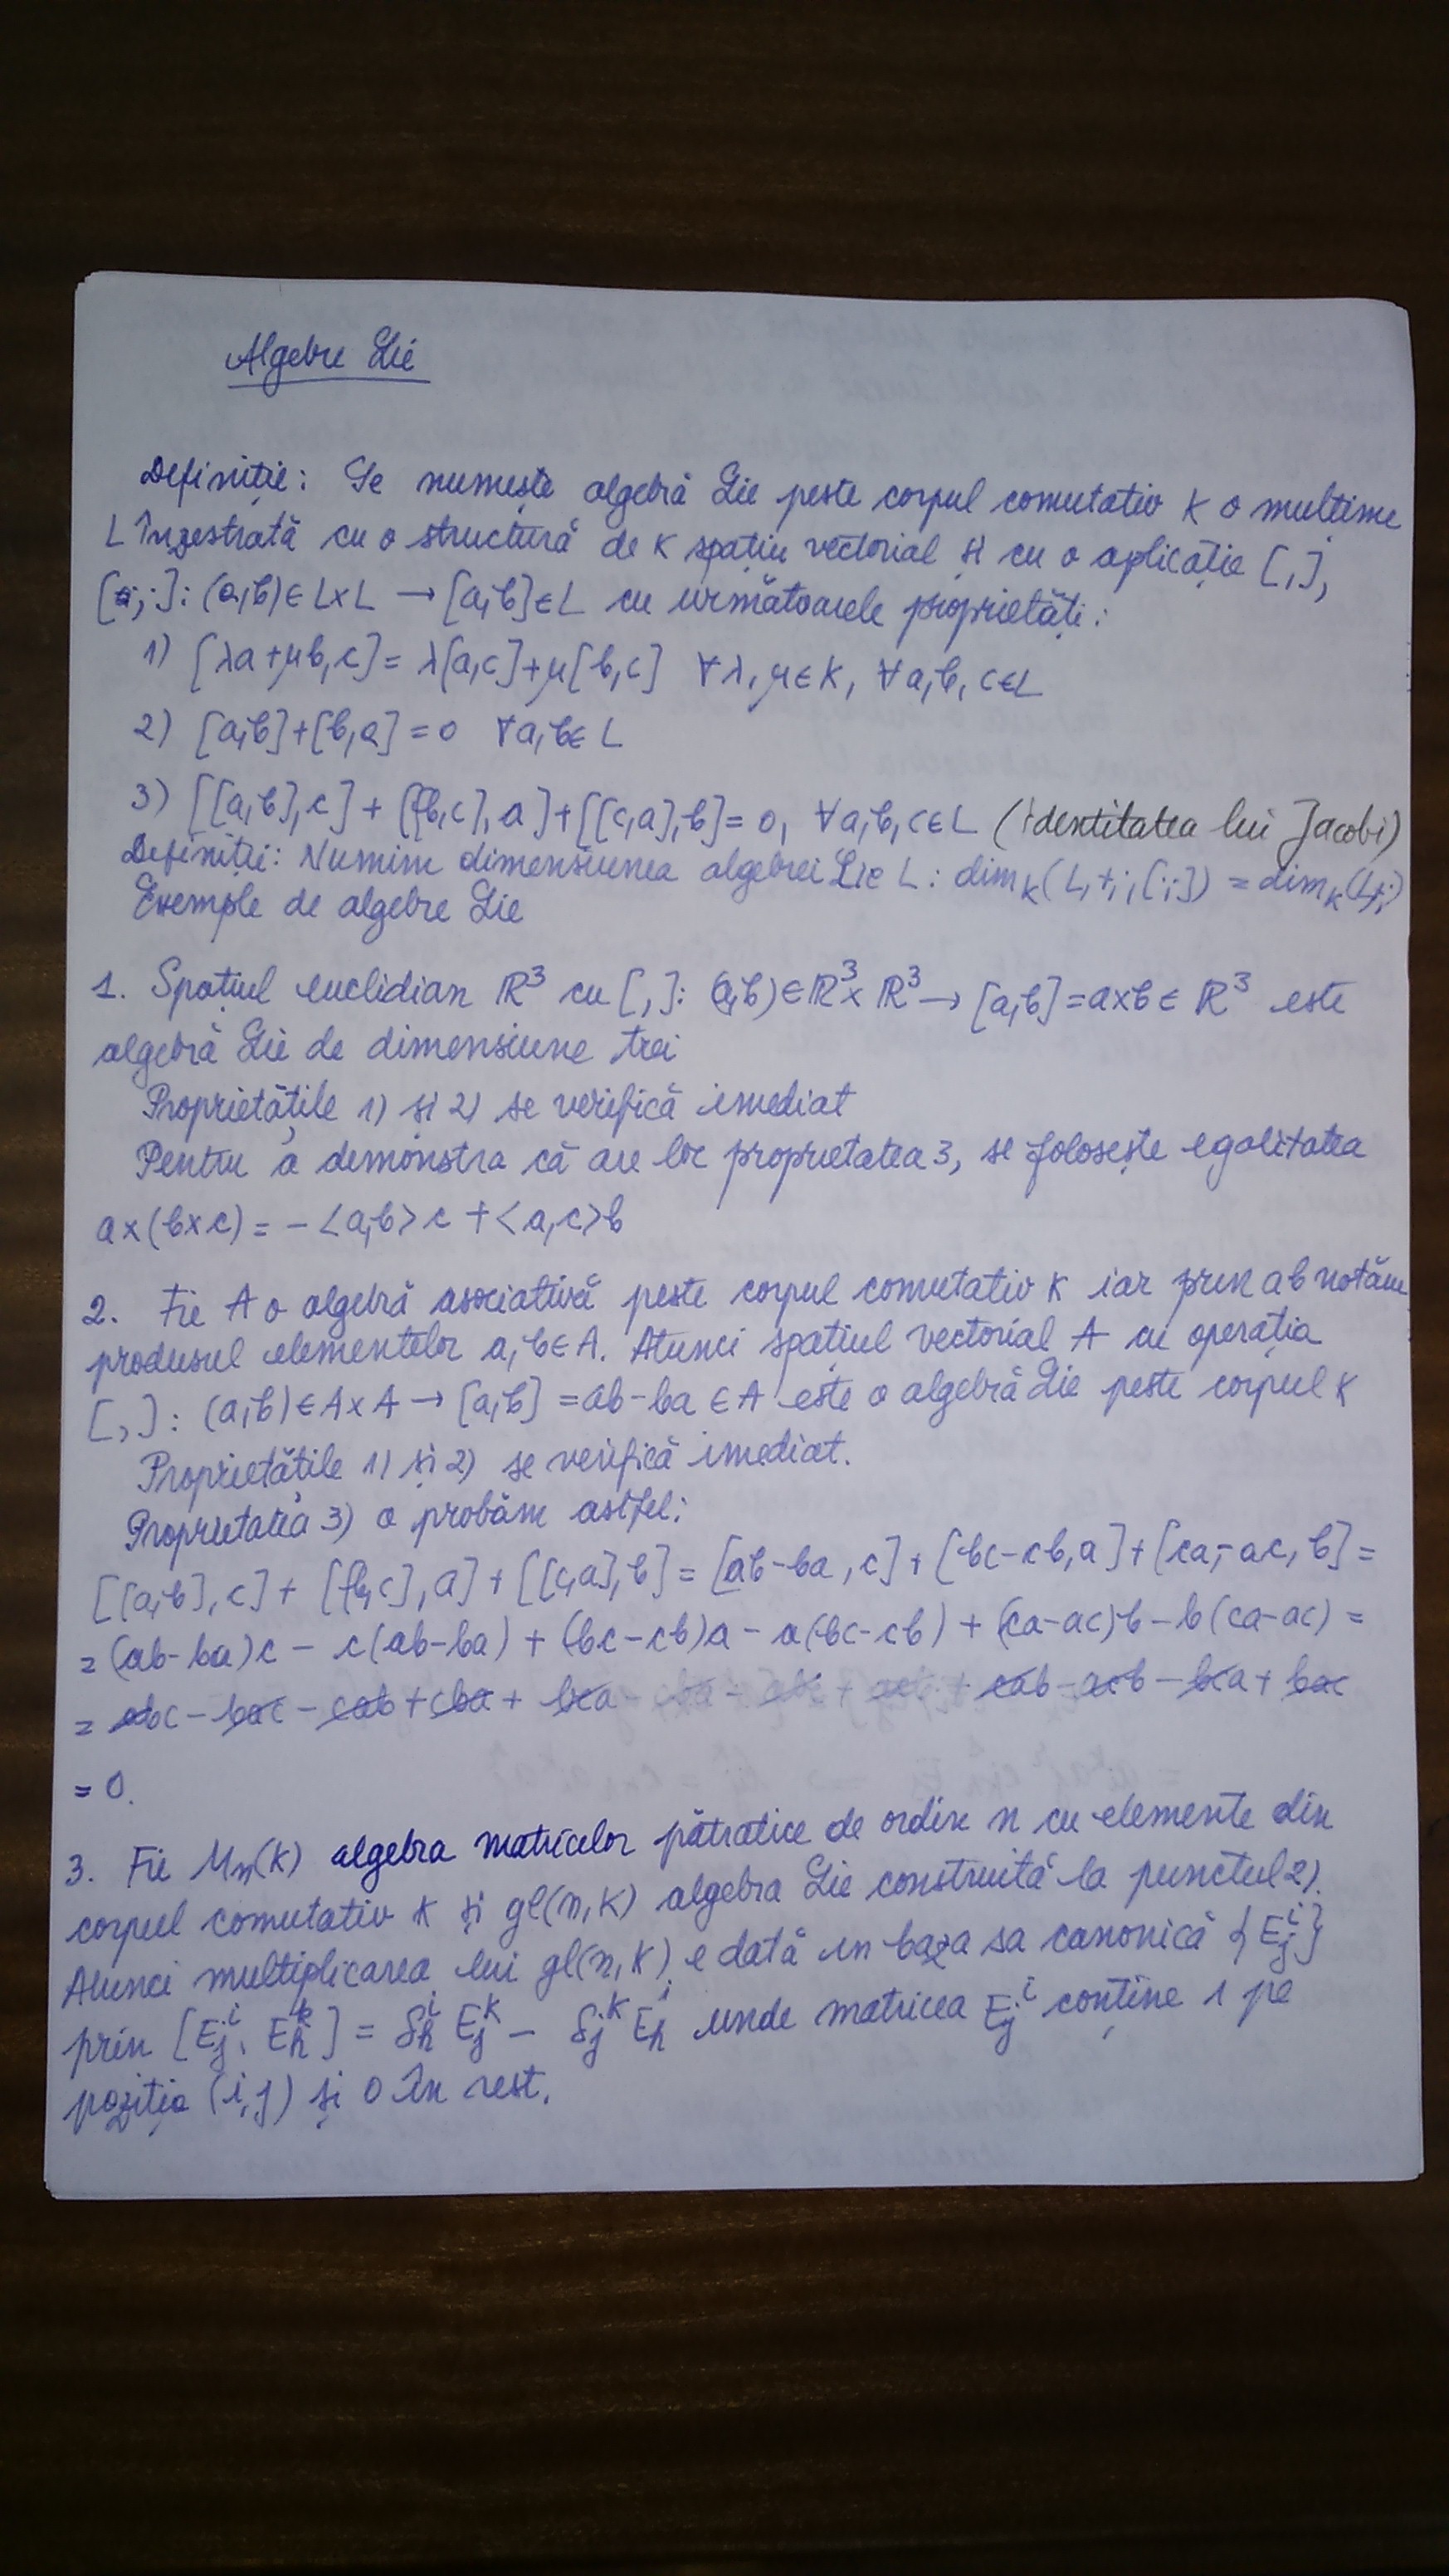 Algebre Lie
Definiție: Se numește algebră Lie peste corpul comutativ K o mulțime
L înzestrată cu o structură de K spațiu vectorial și cu o aplicație [,],
[·,·]: (a,b)∈L×L → [a,b]∈L cu următoarele proprietăți:
1) [λa+μb,c]=λ[a,c]+μ[b,c] ∀λ,μ∈K, ∀a,b,c∈L
2) [a,b]+[b,a]=0 ∀a,b∈L
3) [[a,b],c]+[[b,c],a]+[[c,a],b]=0, ∀a,b,c∈L (identitatea lui Jacobi)
Definiții: Numim dimensiunea algebrei Lie L: dim_K(L,+,·,[,])=dim_K(L,+,·)
Exemple de algebre Lie
1. Spațiul euclidian ℝ³ cu [,]: (a,b)∈ℝ³×ℝ³→[a,b]=a×b∈ℝ³ este
algebră Lie de dimensiune trei
Proprietățile 1) și 2) se verifică imediat
Pentru a demonstra că are loc proprietatea 3, se folosește egalitatea
a×(b×c)=-<a,b>c+<a,c>b
2. Fie A o algebră asociativă peste corpul comutativ K iar prin ab notăm
produsul elementelor a,b∈A. Atunci spațiul vectorial A cu operația
[,]: (a,b)∈A×A→[a,b]=ab-ba∈A este o algebră Lie peste corpul K
Proprietățile 1) și 2) se verifică imediat.
Proprietatea 3) o probăm astfel:
[[a,b],c]+[[b,c],a]+[[c,a],b]=[ab-ba,c]+[bc-cb,a]+[ca-ac,b]=
=(ab-ba)c-c(ab-ba)+(bc-cb)a-a(bc-cb)+(ca-ac)b-b(ca-ac)=
=abc-bac-cab+cba+bca-cba-abc+acb+cab-acb-bca+bac
=0.
3. Fie Mn(K) algebra matricelor pătratice de ordin n cu elemente din
corpul comutativ K și gl(n,K) algebra Lie construită la punctul 2).
Atunci multiplicarea lui gl(n,K) e dată in baza sa canonică {E_j^i}
prin [E_j^i, E_h^k]=δ_h^i E_j^k - δ_j^k E_h^i unde matricea E_j^i conține 1 pe
poziția (i,j) și 0 în rest.